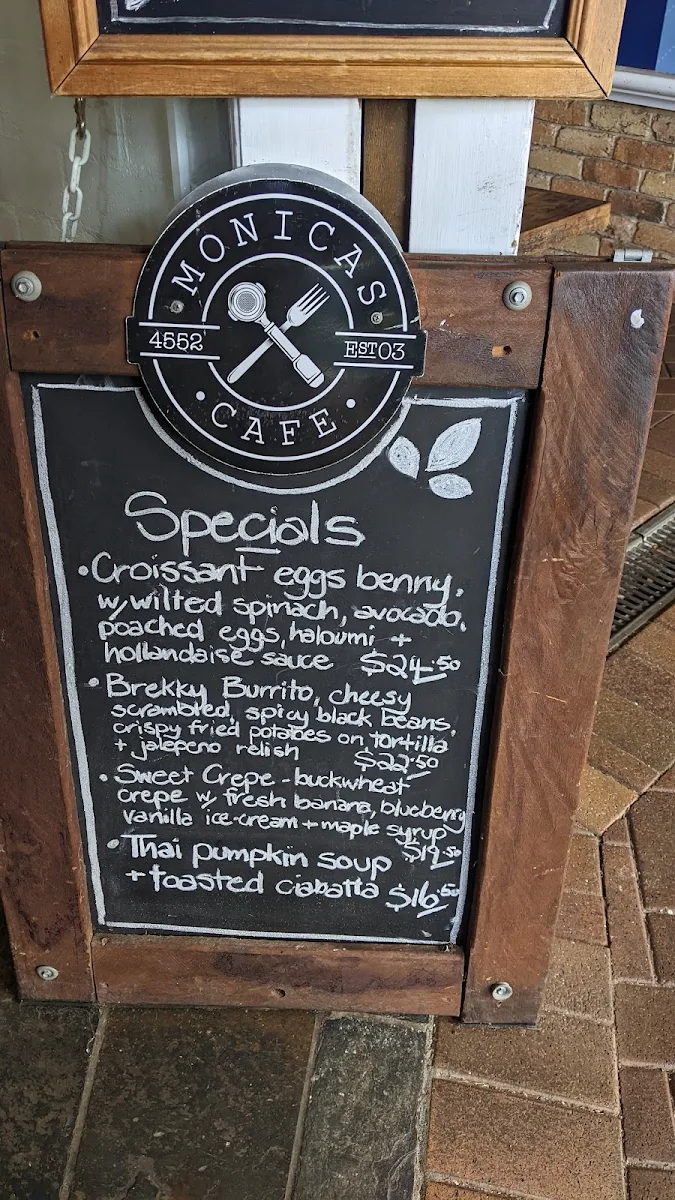 MONICAS
4552
EST03
CAFE
Specials
• Croissant eggs benny,
w/ wilted spinach, avocado,
poached eggs, haloumi +
hollandaise sauce $24.50
• Brekky Burrito, cheesy
scrambled, spicy black beans,
crispy fried potatoes on tortilla
+ jalepeno relish $22.50
• Sweet Crepe - buckwheat
crepe w/ fresh banana, blueberry
vanilla ice-cream + maple syrup
$19.50
• Thai pumpkin soup
+ toasted ciabatta $16.50